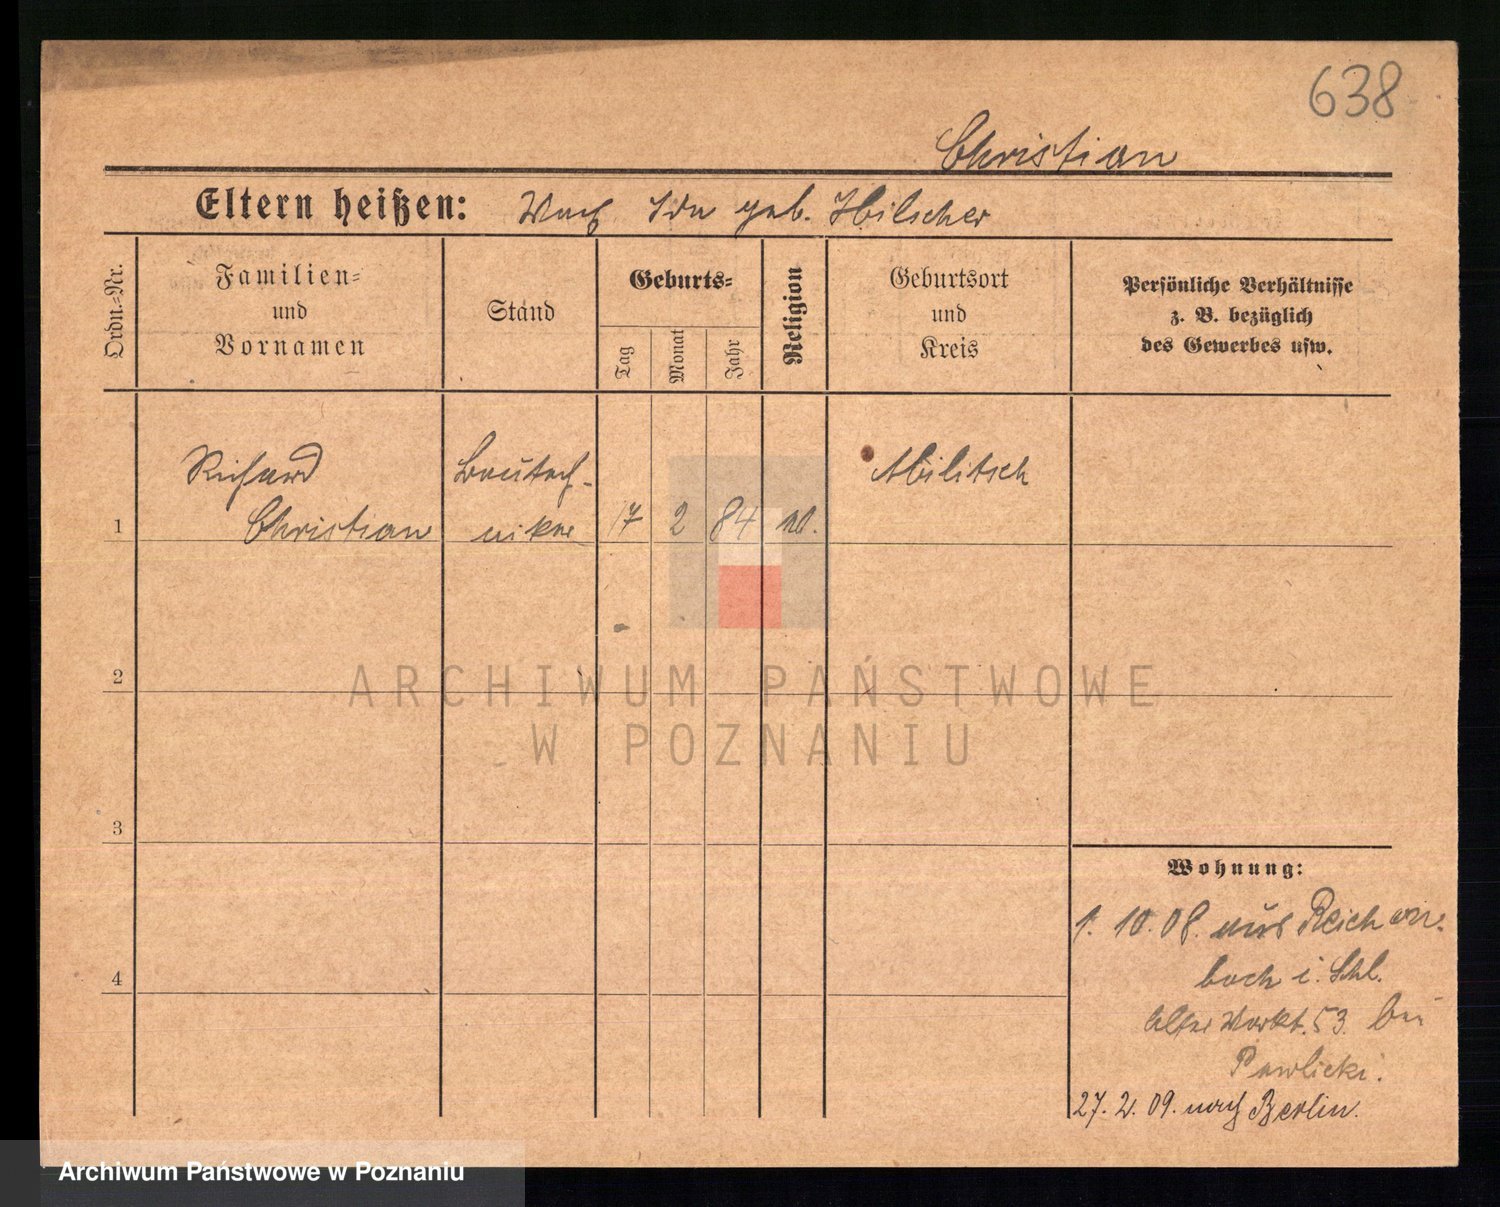 638
Christian
Eltern heißen: Ida geb. Hilscher
Ordn.=Nr.
Familien=
und
Vornamen
Stand
Geburts=
Tag
Monat
Jahr
Religion
Geburtsort
und
Kreis
Persönliche Verhältnisse
z. B. bezüglich
des Gewerbes usw.
1
Richard
Christian
Bautech-
niker
17 2 84
Militsch
2
3
4
ARCHIWUM PAŃSTWOWE
W POZNANIU
Wohnung:
1. 10. 08. aus Reichen-
bach i. Schl.
Alter Markt. 53. bei
Pawlicki.
27. 2. 09. nach Berlin.
Archiwum Państwowe w Poznaniu